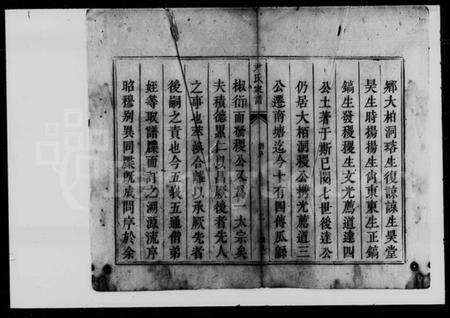 鄉大柏洞琦生復諒諒生昊堂
昊生時揚揚生尚東東生正鎬
鎬生發稷稷生文光薦道達四
公土著于斯已閱七世後達公
仍居大柏洞稷公携光薦道三
公遷南塘迄今十有四傳瓜緜
尹氏家譜
椒衍而發稷公又為一大宗矣
夫積德累仁以昌厥後者先人
之事也萃渙合離以承厥先者
後嗣之責也今五教五通偕弟
姪等取譜牒而訂之溯源流序
昭穆別異同牒既成問序於余